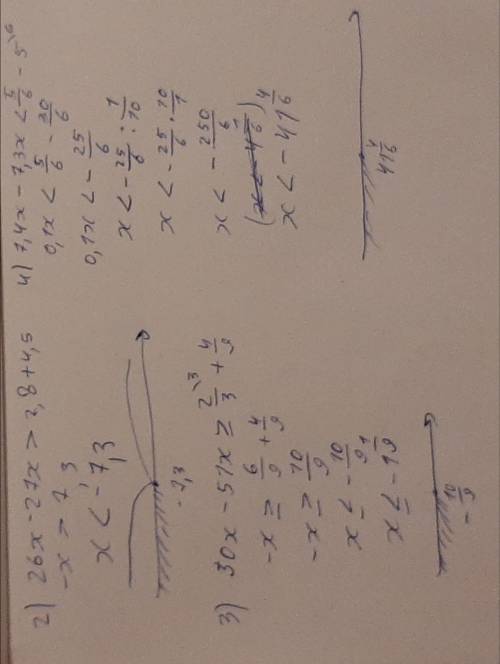 2) 26x - 27x > 2,8 + 4,5
-x > 7,3
x < -7,3
-7,3
3) 30x - 51x ≥ 2/3 \3 + 4/9
-x ≥ 6/9 + 4/9
-x ≥ 10/9
x ≤ -10/9
x ≤ -1 1/9
-10/9
4) 7,4x - 7,3x < 5/6 - 5 \6
0,1x < 5/6 - 30/6
0,1x < -25/6
x < -25/6 : 1/10
x < -25/6 · 10/1
x < -250/6
(x < -4 1/6)
x < -41 4/6
41 4/6